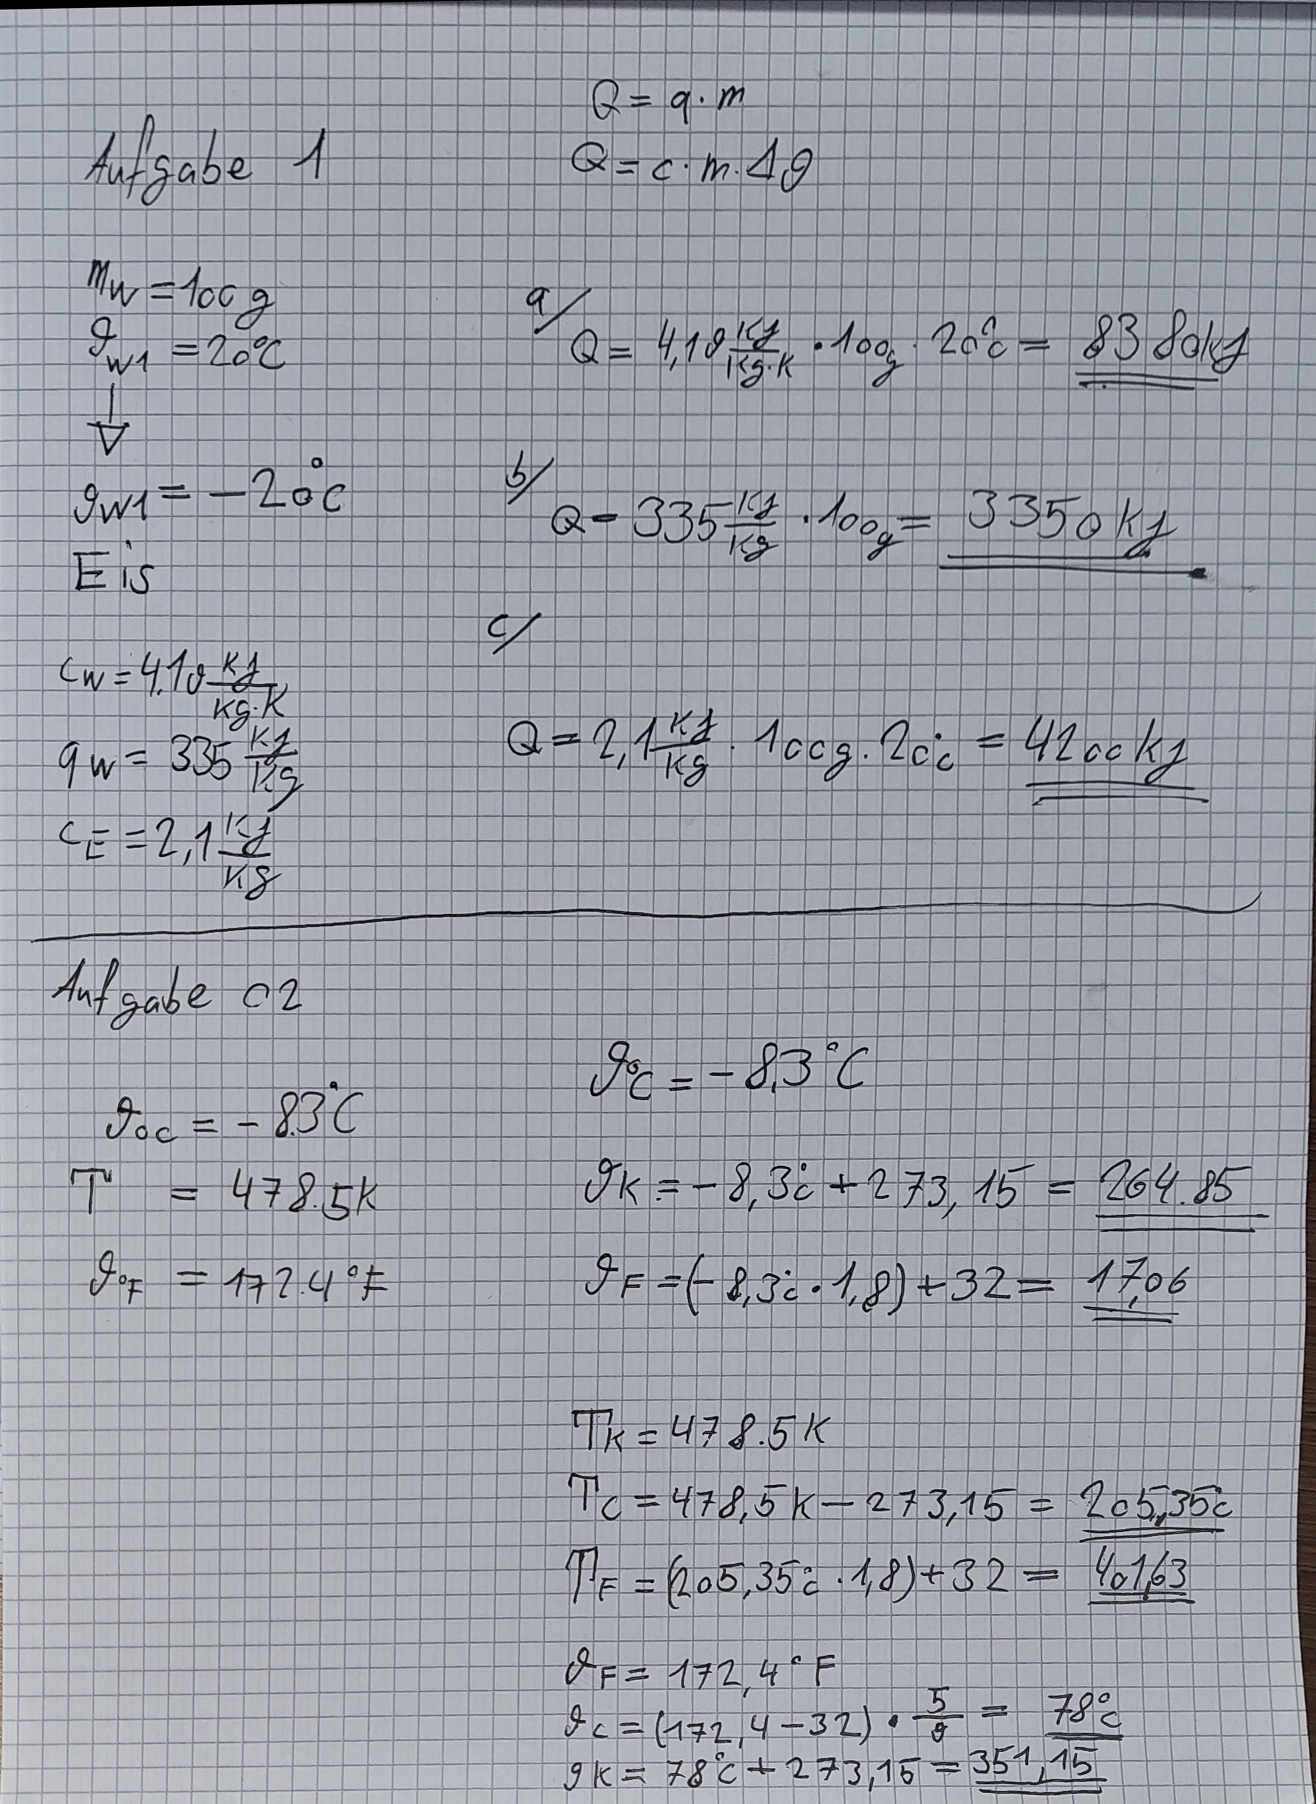 Q = q · m
Aufgabe 1
Q = c · m · Δϑ
mW = 100g
ϑW1 = 20°C
ϑW1 = -20°C
Eis
cW = 4.19 kJ/kg·K
qW = 335 kJ/kg
cE = 2,1 kJ/kg
a/
Q = 4,19 kJ/kg·K · 100g · 20°C = 8380kJ
b/
Q = 335 kJ/kg · 100g = 3350kJ
c/
Q = 2,1 kJ/kg · 100g · 20°C = 4200kJ
Aufgabe 02
ϑ°C = -8.3°C
T = 478.5K
ϑ°F = 172.4°F
ϑ°C = -8,3°C
ϑK = -8,3°C + 273,15 = 264.85
ϑF = (-8,3°C · 1,8) + 32 = 17,06
TK = 478.5K
TC = 478,5K - 273,15 = 205,35°C
TF = (205,35°C · 1,8) + 32 = 401,63
ϑF = 172,4°F
ϑC = (172,4 - 32) · 5/9 = 78°C
ϑK = 78°C + 273,15 = 351,15